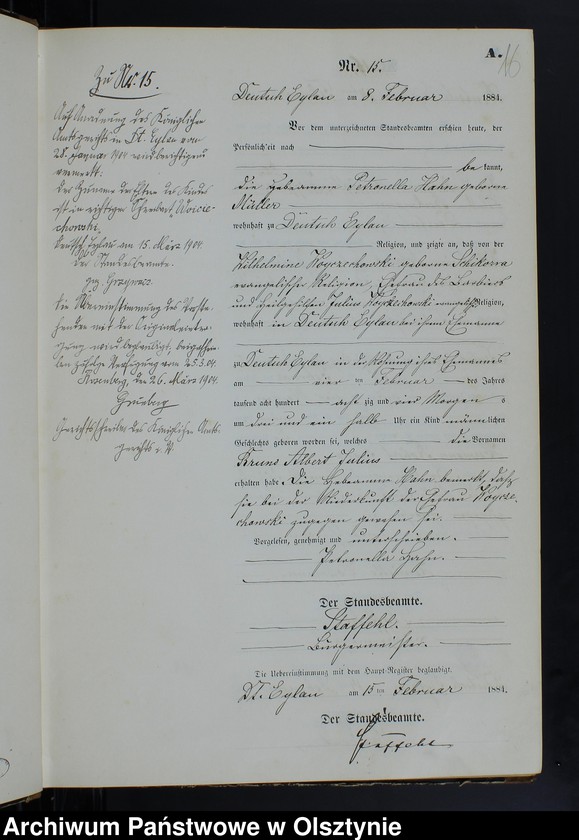 A.
16
Zu No. 15.
Auf Anordnung des Königlichen
Amtsgerichts in Dt. Eylau vom
28. Januar 1904 wird berichtigend
vermerkt:
Der Zuname der Eltern des Kindes
ist in richtiger Schreibart Woicie-
chowski.
Deutsch Eylau am 15. März 1904.
Der Standesbeamte.
gez.
Die Übereinstimmung des Vorste-
henden mit der
wird beglaubigt,
zufolge Verfügung vom 25.3.04.
Rosenberg, den 26. März 1904.
Gerichtsschreiber des Königlichen Amts-
gerichts
Nr. 15.
Deutsch Eylau am 8. Februar 1884.
Vor dem unterzeichneten Standesbeamten erschien heute, der
Persönlichkeit nach
bekannt,
die Hebeamme Petronella Hahn geborene
Müller
wohnhaft zu Deutsch Eylau
Religion, und zeigte an, daß von der
Wilhelmine Woyczechowski geborene Schikorra
evangelischer Religion, Ehefrau des Barbiers
und Heilgehilfen Julius Woyczechowski evangelisch Religion,
wohnhaft in Deutsch Eylau bei ihrem Ehemanne
zu Deutsch Eylau in der Wohnung ihres Ehemannes
am vier ten Februar des Jahres
tausend acht hundert acht zig und vier Morgens
um drei und ein halb Uhr ein Kind männlichen
Geschlechts geboren worden sei, welches die Vornamen
Bruno Albert Julius
erhalten habe. Die Hebeamme Hahn bemerkt, daß
sie bei der Niederkunft der Ehefrau Woycze-
chowski zugegen gewesen sei.
Vorgelesen, genehmigt und unterschrieben.
Petronella Hahn.
Der Standesbeamte.
Staffehl.
Bürgermeister.
Die Uebereinstimmung mit dem Haupt-Register beglaubigt.
Dt. Eylau am 15 ten Februar 1884.
Der Standesbeamte.
Staffehl
Archiwum Państwowe w Olsztynie